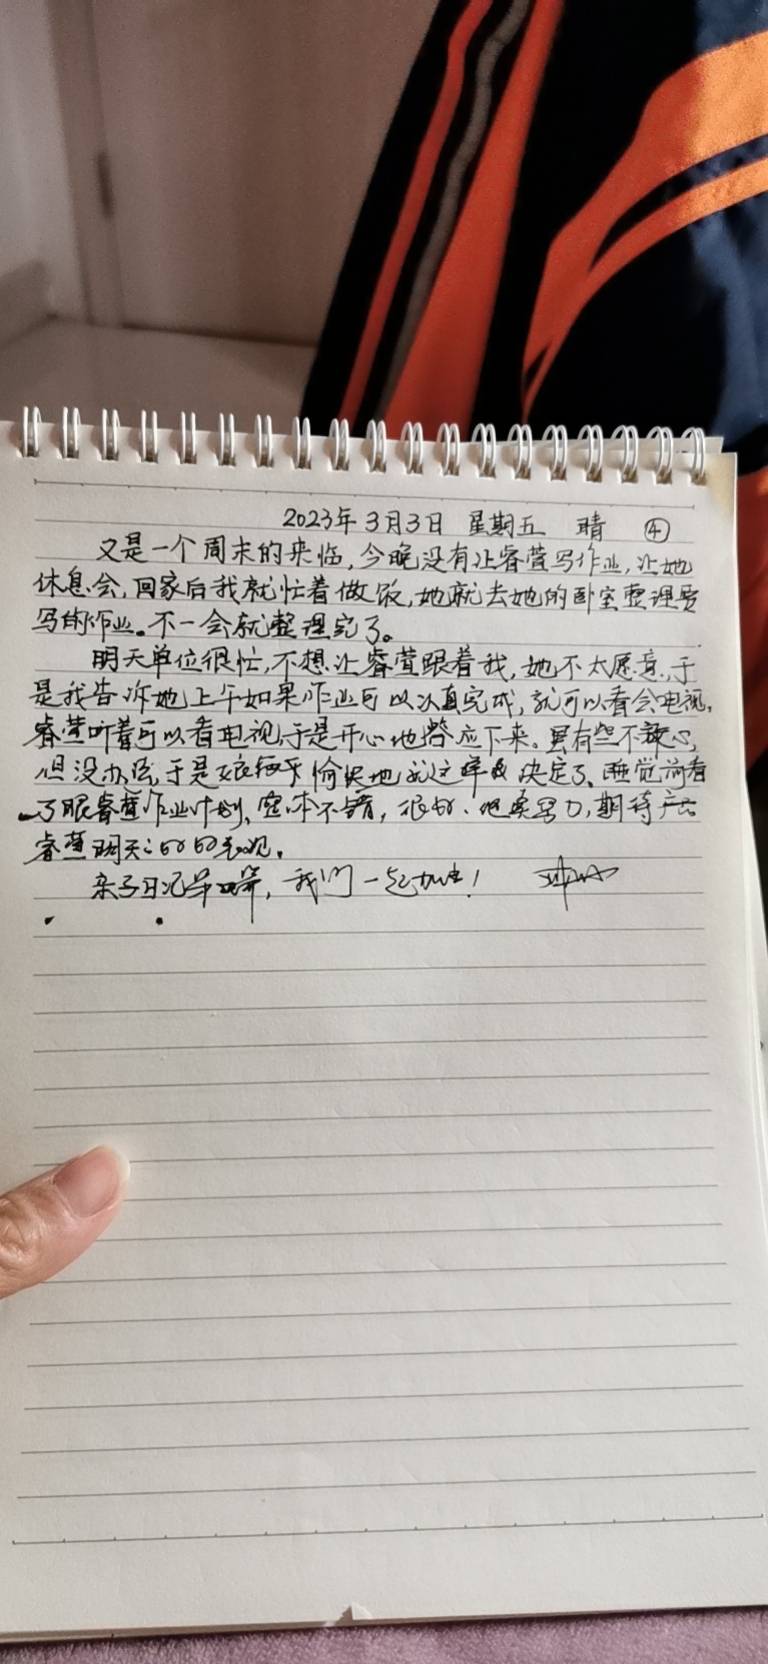 2023年3月3日 星期五 晴 ④
又是一个周末的来临,今晚没有让睿萱写作业,让她
休息会,回家后我就忙着做饭,她就去她的卧室整理要
写的作业。不一会就整理完了。
明天单位很忙,不想让睿萱跟着我,她不太愿意,于
是我告诉她上午如果作业可以认真完成,就可以看会电视,
睿萱听着可以看电视,于是开心地答应下来。虽有些不放心,
但没办法,于是娘俩愉快地就这样决定了。睡觉前看
了眼睿萱作业计划、不错,很好、继续努力,期待
睿萱明天的表现。
亲子日记第,我们一起加油!